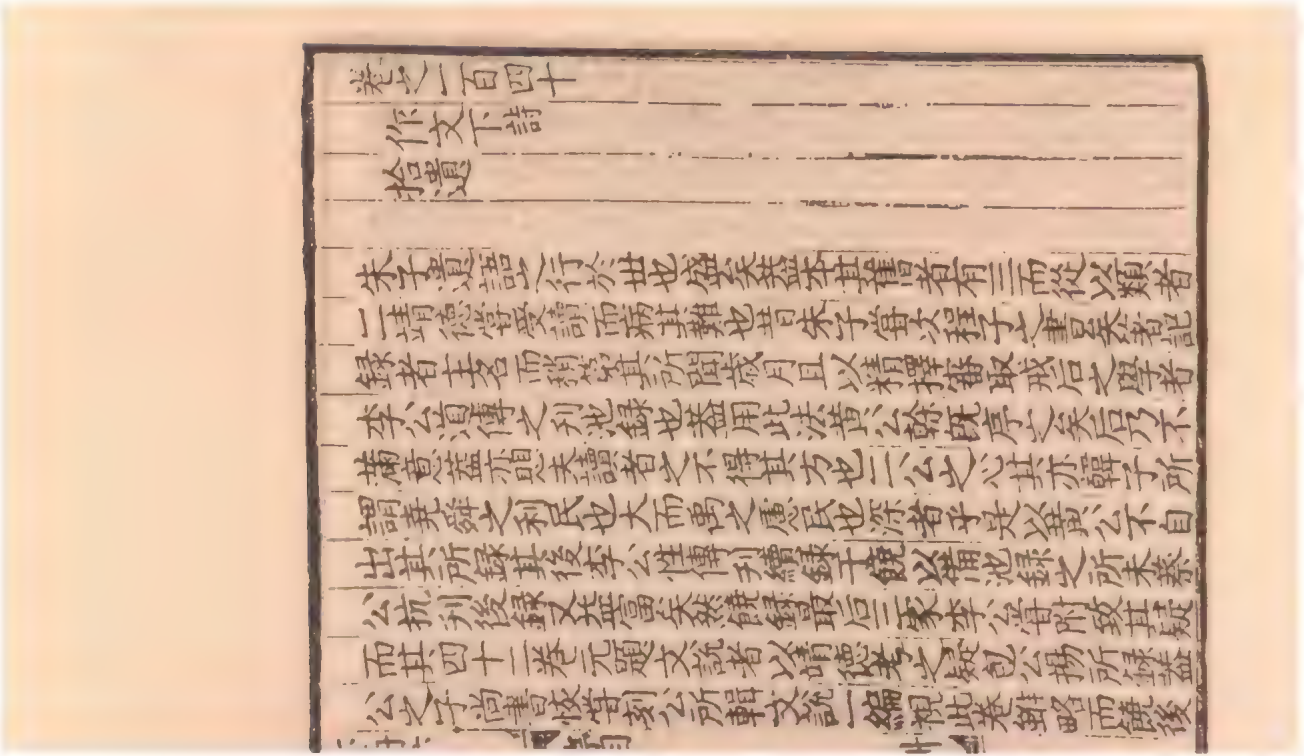 卷之一百四十
作文下詩
拾遺
朱子遺語之行於世也盛矣蓋本其舊者有三而從以類者
二靖德嘗受讀而病其難也昔朱子嘗次程子之書矣著記
錄者主名而稍第其所聞歲月且以精擇審取戒后之學者
李公道傳之刊池錄也蓋用此法黃公榦既序之矣后乃不
滿意蓋亦懼夫讀者之不得其方也二公之心其亦韓子所
謂堯舜之利民也大而禹之慮民也深者乎是以黃公不自
出其所錄其後李公性傳刊續錄于饒以備池錄之所未蔡
公抗刊後錄又益富矣然饒錄最后三家李公嘗附致其疑
而其四十二卷元題文說者以靖德考之疑包公揚所錄蓋
公之子尚書恢嘗刻公所輯文說一編視此卷雖略而饒後